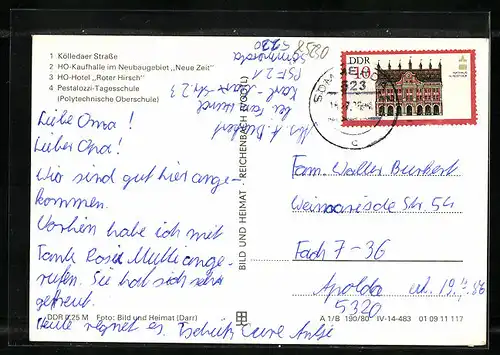 1 Kölledaer Straße
2 HO-Kaufhalle im Neubaugebiet „Neue Zeit"
3 HO-Hotel „Roter Hirsch"
4 Pestalozzi-Tagesschule
(Polytechnische Oberschule)
Liebe Oma!
Lieber Opa!
Wir sind gut hier ange-
kommen.
Vorhin habe ich mit
Tante Rosis Mutti ange-
rufen. Sie hat sich sehr
gefreut.
Heute regnet es. Tschüß Eure Antje
DDR 0,25 M Foto: Bild und Heimat (Darr)
BILD UND HEIMAT · REICHENBACH (VOGTL)
5230
Sömmerda
PSF 21
Karl-Marx-Str. 23
DDR
10
SÖMMERDA
523
c
Fam. Walter Burkert
Weimarische Str. 54
Fach 7-36
Apolda
5320
A 1/B 190/80 IV-14-483 01 09 11 117